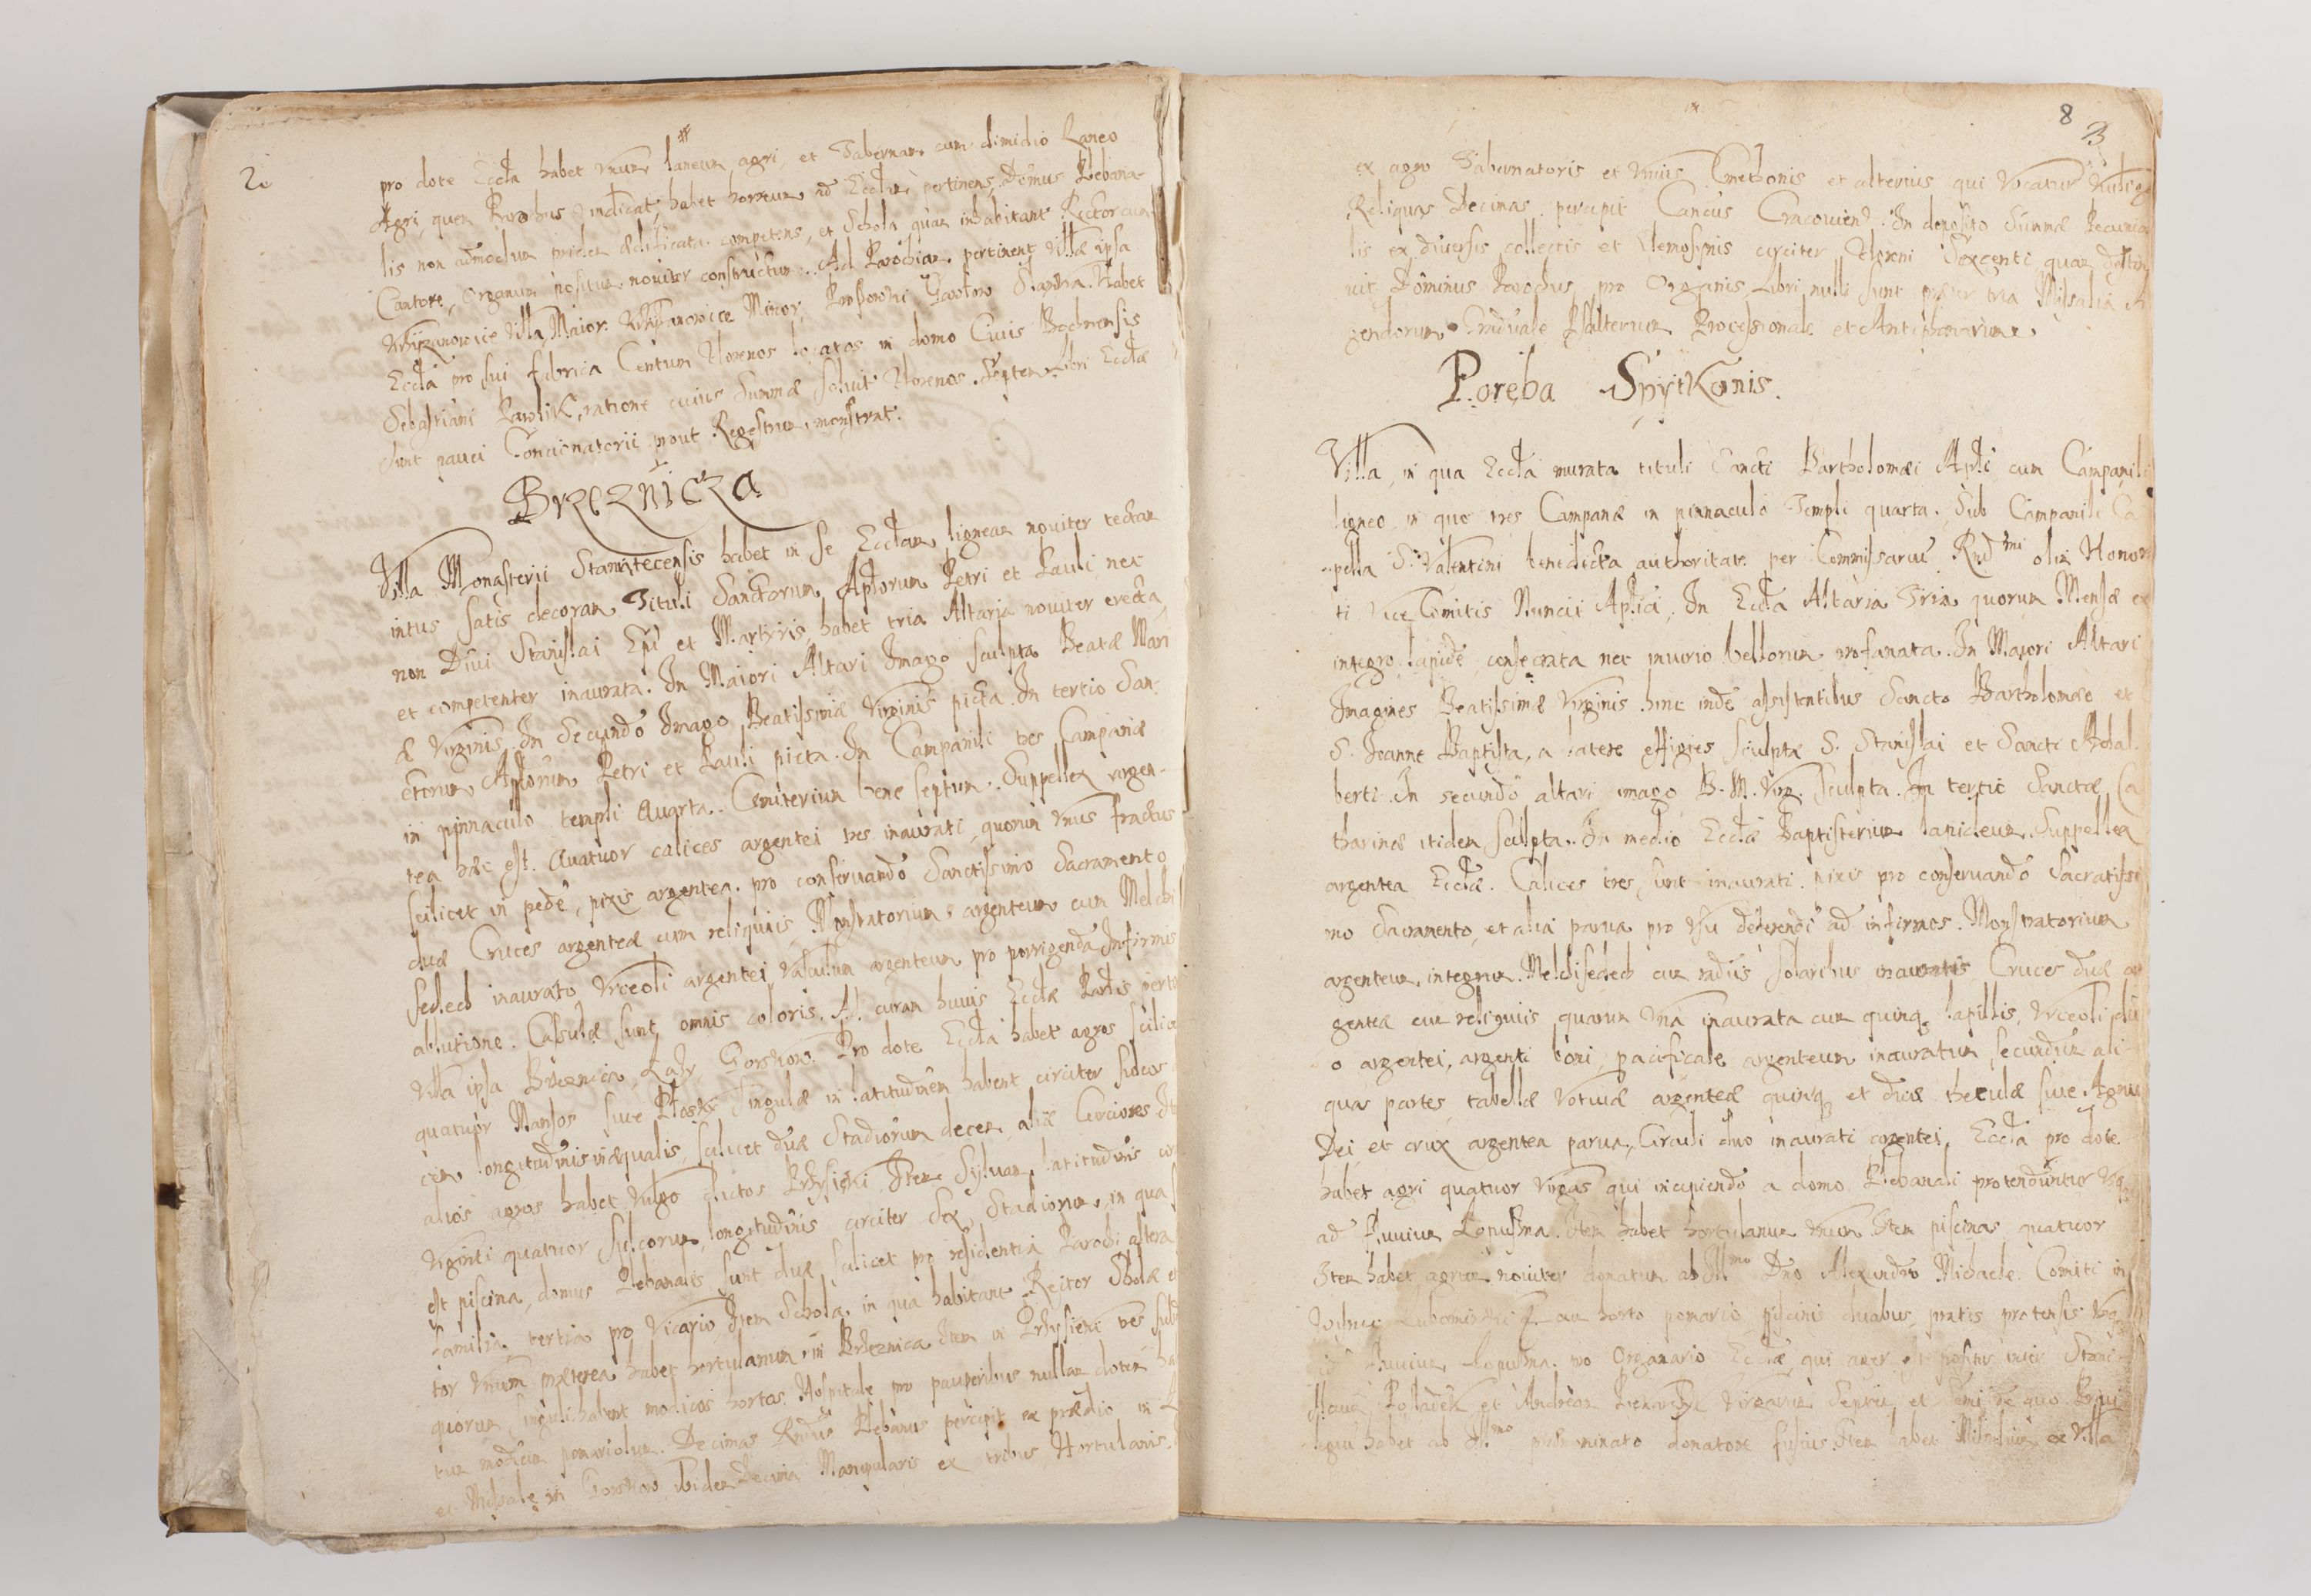 2
pro dote Eccła habet vnum laneum agri, et Tabernam cum dimidio Laneo
Agri, quem Parochus vindicat, habet horreum ad Eccłam pertinens, Domus Plebana-
lis non admodum pridem ædificata competens, et Schola quam inhabitant Rector cum
Cantore, Organum positium noviter constructum. Ad Parochiam pertinent villæ ipsa
Villa Maior Minor, Habet
Eccła pro sui fabrica Centum florenos locatos in domo Civis Bochnensis
Sebastiani Pawlik, ratione cuius Summæ soluit florenos Septem. Libri Eccłæ
sunt pauci Concionatorii prout Regestrum monstrat.
Brzeznicza
Villa Monasterii Staniątecensis habet in se Eccłam ligneam noviter tectam
intus satis decoram Tituli Sanctorum Apłorum Petri et Pauli, nec
non Divi Stanislai Epi et Martyris, habet tria Altaria noviter erecta
et competenter inaurata. In Maiori Altari Imago sculpta Beatæ Mari
æ Virginis. In Secundo Imago Beatissimæ Virginis picta. In tertio San-
ctorum Apłorum Petri et Pauli picta. In Campanili tres Campanæ
in pinnaculo templi Quarta. Cœmiterium bene septum. Suppellex argen-
tea hæc est. Quatuor calices argentei tres inaurati, quorum vnus fractus
scilicet in pede, pixis argentea pro conservando Sanctissimo Sacramento
duæ Cruces argenteæ cum reliquiis, Monstratorium argenteum cum Melchi
sedech inaurato Vrceoli argentei vasculum argenteum pro porrigenda Infirmis
ablutione. Casulæ sunt omnis coloris. Ad curam huius Eccłæ
Villa ipsa Brzeznica, Łazy, Gorzkow. Pro dote Eccła habet agros scilicet
quatuor Mansos sive singulæ in latitudinem habent circiter sulcos
longitudinis inæqualis, scilicet duæ Stadiorum decem, aliæ
alios agros habet vulgo dictos Item Sylvam latitudinis
Viginti quatuor sulcorum, longitudinis circiter Sex Stadiorum, in qua
est piscina, domus Plebanales sunt duæ scilicet pro residentia Parochi altera
familia, tertia pro Vicario, Item Schola in qua habitant Rector Scholæ et
tor Vnum præterea habet hortulanum in Brzeznica Item in tres
quorum singuli habent modicos hortos. Hospitale pro pauperibus nullam dotem
tum modicum pomariolum. Decimas Rndus Plebanus percipit ex prædio in
et in Gorzkow, ibidem Decima Manipularis ex tribus Hortulanis
8
3
ex agro Tabernatoris et vnius Cmethonis et alterius qui vocatur
Reliquas Decimas percipit Cracovien. In deposito Summæ Pecunia
lis ex diversis collectis et Elemosynis circiter floreni Sexcenti quam
vit Dominus Parochus, pro Organis, Libri nulli sunt præter tria Missalia A
gendorum Graduale Psalterium Processionale et Antiphonarium
Poręba Spytkonis.
Villa, in qua Eccła murata tituli Sancti Bartholomæi Apłi cum Campanili
ligneo in quo tres Campanæ in pinnaculo Templi quarta. Sub Campanili Ca
pella S. Valentini benedicta authoritate per Commissarium Rndmi olim Honora
ti Vice Comitis Nuncii Aplici, In Eccła Altaria Tria quorum Mensæ ex
integro lapide consecrata nec iniurio bellorum profanata. In Maiori Altari
Imagines Beatissimæ Virginis hinc inde assistentibus Sancto Bartholomæo et
S. Joanne Baptista, a latere effigies sculptæ S. Stanislai et Sancti Adal-
berti. In secundo altari imago B. M. Virg. sculpta. In tertio Sanctæ Ca
tharinæ itidem sculpta. In medio Eccłæ Baptisterium lapideum. Suppellex
argentea Eccłæ. Calices tres, sunt inaurati, pixis pro conservando Sacratissi
mo Sacramento, et alia parva pro vsu deferendi ad infirmos. Monstratorium
argenteum integrum Melchisedech cum radiis solaribus inauratis Cruces duæ ar
genteæ cum reliquiis quarum vna inaurata cum quinq lapillis, Vrceoli du
o argentei, argenti boni, pacificale argenteum inauratum secundum ali-
quas partes, tabellæ votivæ argenteæ quinq et duæ theculæ sive Agnus
Dei et crux argentea parva, Circuli duo inaurati argentei. Eccła pro dote
habet agri quatuor virgas qui incipiendo a domo Plebanali protenduntur vsq
ad fluvium Łopuszna. Item habet hortulanum vnum Item piscinas quatuor
Item habet agrum noviter donatum ab Illmo Dno Alexandro Michaele Comiti in
Wisnic Lubomirski cum horto pomario piscinis duabus pratis protensis vsq
ad fluvium Łopuszna pro Organario Eccłæ qui ager est positus inter Stani-
slaum et Andream Virgarum Septem et semi de quo Privi
legium habet ab Illmo prænominato donatore fusius. Item habet ex Villa